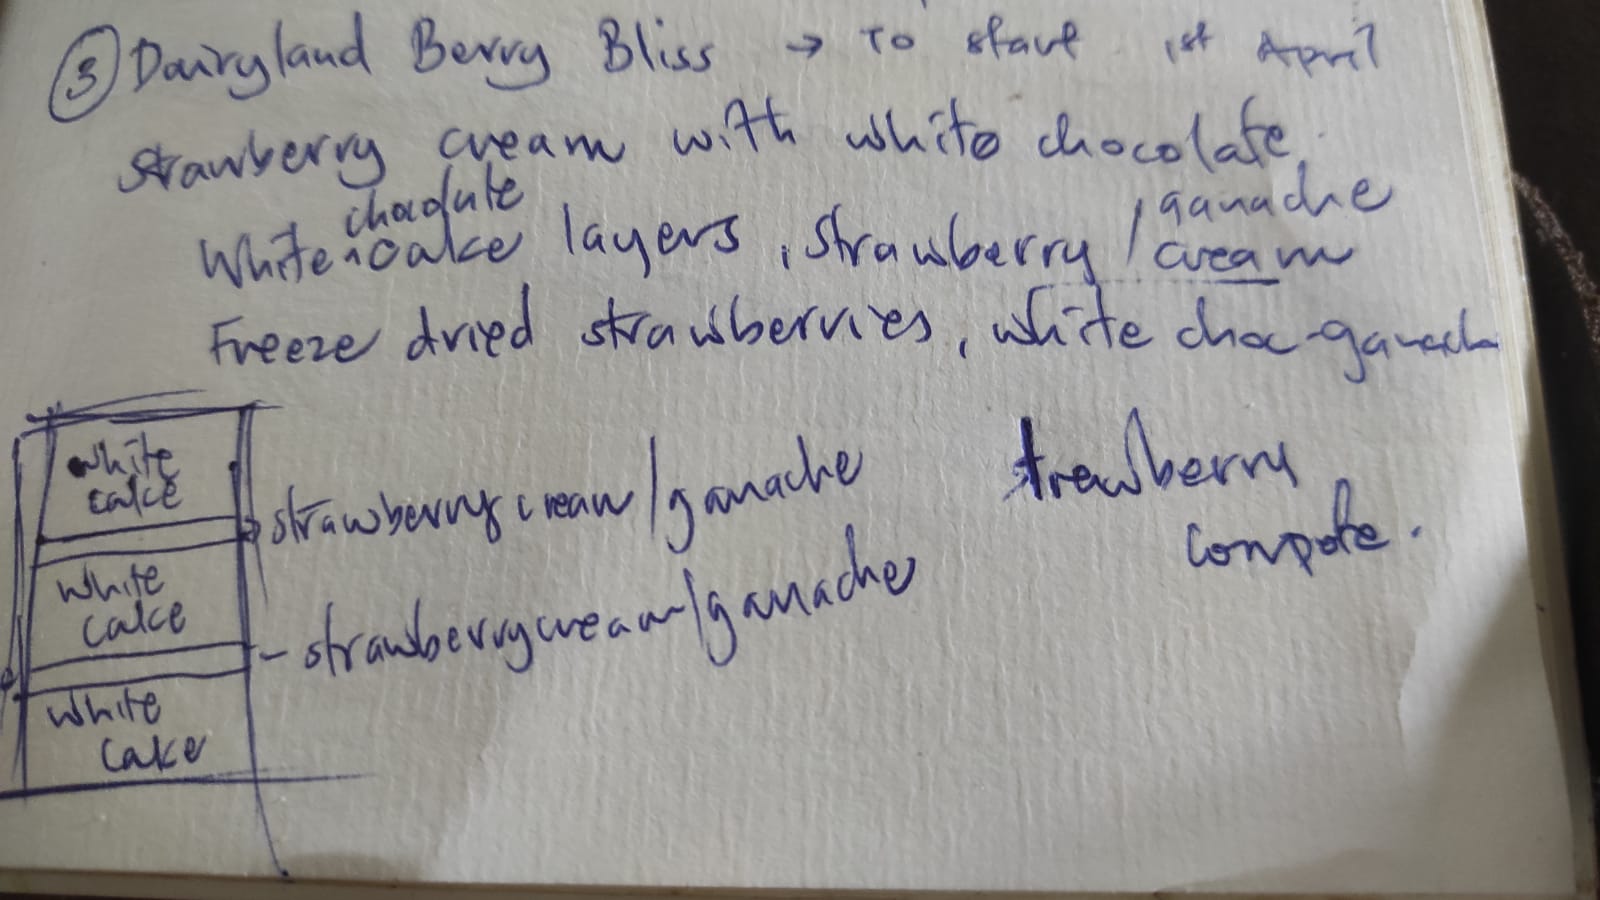 ③ Dairyland Berry Bliss → To start 1st April
strawberry cream with white chocolate.
chocolate
White cake layers, strawberry / cream
ganache
Freeze dried strawberries, white choc-ganach
white
cake
strawberry cream/ganache
white
cake
- strawberry cream/ganache
white
cake
strewberry
compote.